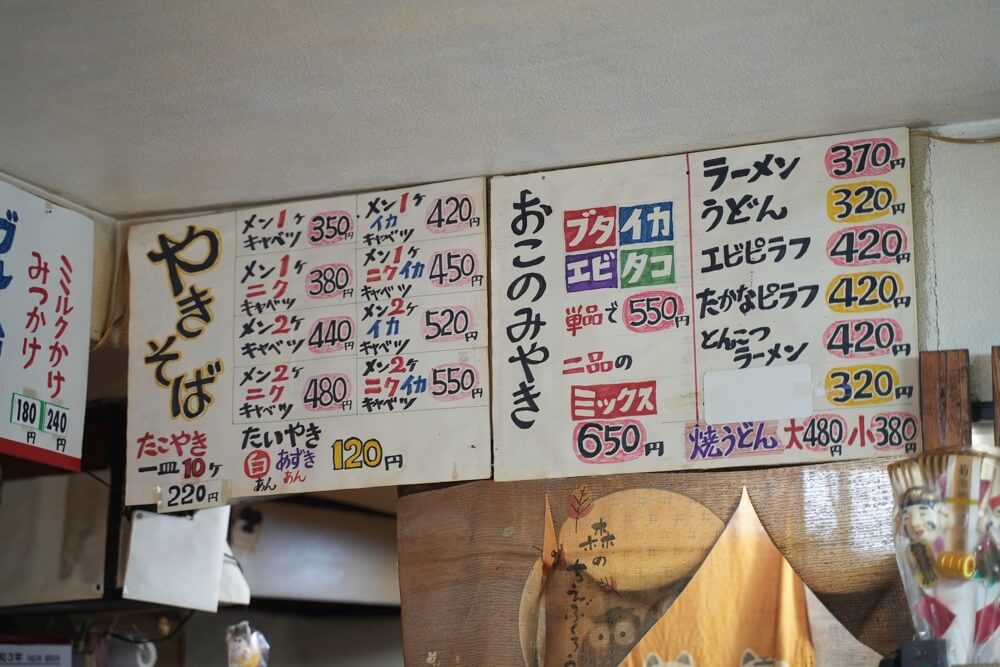 ミルクかけ
みつかけ
180円
240円
やきそば
メン1ケ
キャベツ
350円
メン1ケ
イカ
キャベツ
420円
メン1ケ
ニク
キャベツ
380円
メン1ケ
ニクイカ
キャベツ
450円
メン2ケ
キャベツ
440円
メン2ケ
イカ
キャベツ
520円
メン2ケ
ニク
キャベツ
480円
メン2ケ
ニクイカ
キャベツ
550円
たこやき
一皿10ケ
220円
たいやき
白あん
あずきあん
120円
おこのみやき
ブタ イカ
エビ タコ
単品で 550円
二品の
ミックス
650円
ラーメン 370円
うどん 320円
エビピラフ 420円
たかなピラフ 420円
とんこつラーメン 420円
320円
焼うどん 大480円 小380円
森の
ちえぶくろ
和3年